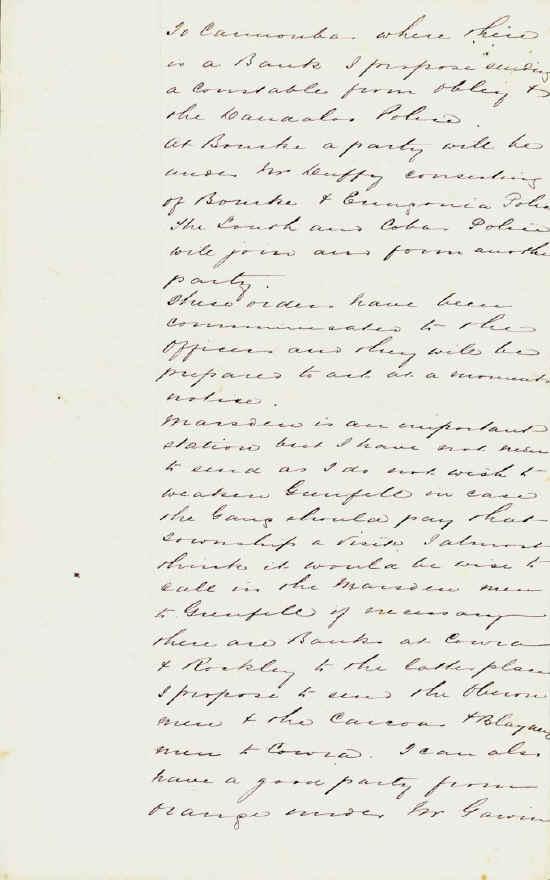 To Cannonbar where there
is a Bank I propose sending
a Constable from Obley &
the Dandaloo Police.
At Bourke a party will be
under Mr Duffy consisting
of Bourke & Enngonia Police
The Louth and Cobar Police
will join and form another
party.
These orders have been
communicated to the
Officers and they will be
prepared to act at a moments
notice.
Marsden is an important
station but I have not men
to send as I do not wish to
weaken Grenfell in case
the Gang should pay that
Township a visit. I almost
think it would be wise to
call in the Marsden men
to Grenfell if necessary
there are Banks at Cowra
& Rockley to the latter place
I propose to send the Oberon
men & the Carcoar & Blayney
men to Cowra. I can also
have a good party from
Orange under Mr